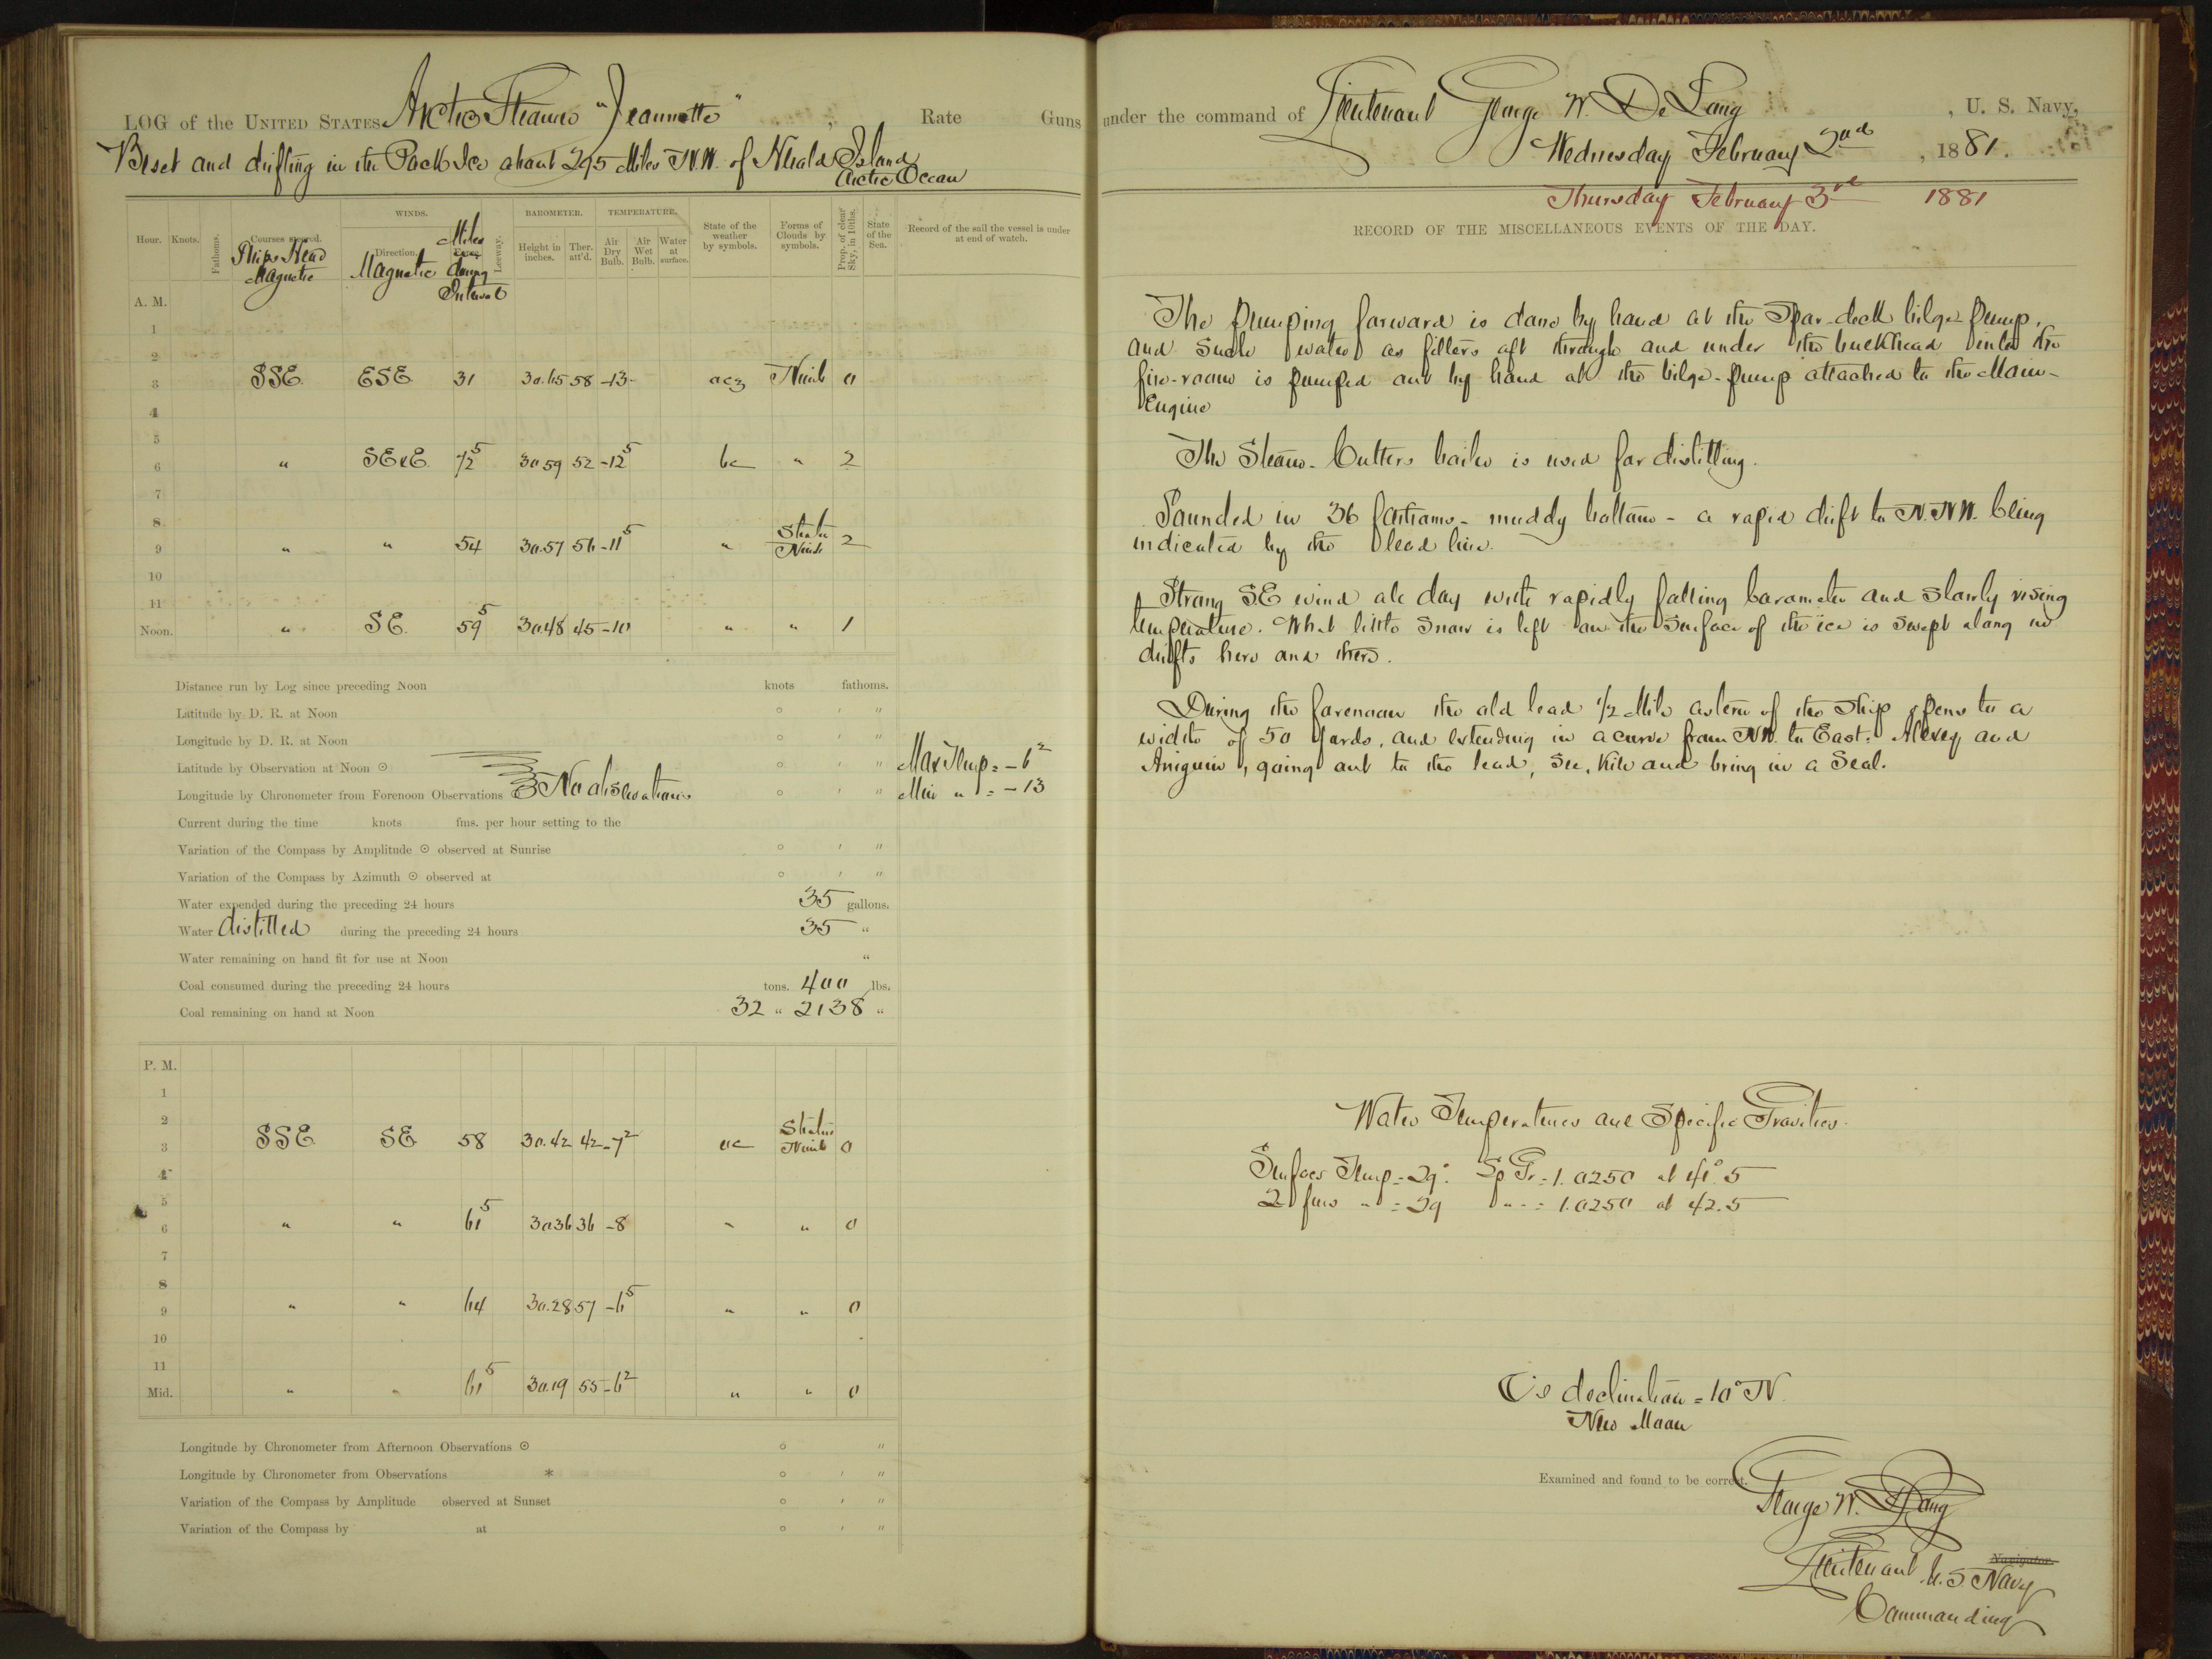 LOG of the UNITED STATES Arctic Steamer "Jeannette", Rate Guns
Beset and drifting in the Pack Ice about 295 Miles N.W. of Herald Island
Arctic Ocean
Hour. Knots. Fathoms. Courses steered. WINDS. Direction. Leeway. BAROMETER. Height in inches. Ther. att'd. TEMPERATURE. Air Dry Bulb. Air Wet Bulb. Water at surface. State of the weather by symbols. Forms of Clouds by symbols. Prop. of clear Sky, in 10ths. State of the Sea. Record of the sail the vessel is under at end of watch.
Ships Head Magnetic Magnetic Miles during Interval
A. M.
1
2
3 SSE ESE 31 30.65 58 -13 ocz Nimb 0
4
5
6 " SExE 42⁵ 30 59 52 -12⁵ bc " 2
7
8
9 " " 54 30.57 56 -11⁵ " Stratus Nimb 2
10
11
Noon. " SE 59⁵ 30.48 45 -10 " " 1
Distance run by Log since preceding Noon knots fathoms.
Latitude by D. R. at Noon ° ' "
Longitude by D. R. at Noon ° ' "
Latitude by Observation at Noon ⊙ ° ' " Max Temp = -6²
Longitude by Chronometer from Forenoon Observations No observations ° ' " Min " = -13
Current during the time knots fms. per hour setting to the
Variation of the Compass by Amplitude ⊙ observed at Sunrise ° ' "
Variation of the Compass by Azimuth ⊙ observed at ° ' "
Water expended during the preceding 24 hours 35 gallons.
Water distilled during the preceding 24 hours 35 "
Water remaining on hand fit for use at Noon "
Coal consumed during the preceding 24 hours tons. 400 lbs.
Coal remaining on hand at Noon 32 " 2138 "
P. M.
1
2
3 SSE SE 58 30.42 42 -7² oc Stratus Nimb 0
4
5
6 " " 61⁵ 30 36 36 -8 " " 0
7
8
9 " " 64 30.28 57 -6⁵ " " 0
10
11
Mid. " " 61⁵ 30.19 55 -6² " " 0
Longitude by Chronometer from Afternoon Observations ⊙ ° "
Longitude by Chronometer from Observations * ° ' "
Variation of the Compass by Amplitude observed at Sunset ° ' "
Variation of the Compass by at ° ' "
under the command of Lieutenant George W. De Long, U. S. Navy,
Wednesday February 2nd, 1881.
Thursday February 3rd 1881
RECORD OF THE MISCELLANEOUS EVENTS OF THE DAY.
The pumping forward is done by hand at the Spar-deck bilge-pump,
and such water as filters aft through and under the bulkhead into the
fire-room is pumped out by hand at the bilge-pump attached to the Main-
Engine
The Steam-Cutters boiler is used for distilling.
Sounded in 36 fathoms - muddy bottom - a rapid drift to N.N.W. being
indicated by the lead line.
Strong SE wind all day with rapidly falling barometer and slowly rising
temperature. What little snow is left on the surface of the ice is swept along in
drifts here and there.
During the forenoon the old lead ½ Mile astern of the Ship opens to a
width of 50 yards, and extending in a curve from NW. to East. Alexey and
Aniguin, going out to the lead, see, kill and bring in a Seal.
Water Temperatures and Specific Gravities
Surface Temp = 29° Sp Gr = 1.0250 at 41°.5
2 fms " = 29 " " = 1.0250 at 42.5
☾'s declination = 10° N.
New Moon
Examined and found to be correct.
George W. De Long
Navigator.
Lieutenant U.S. Navy
Commanding